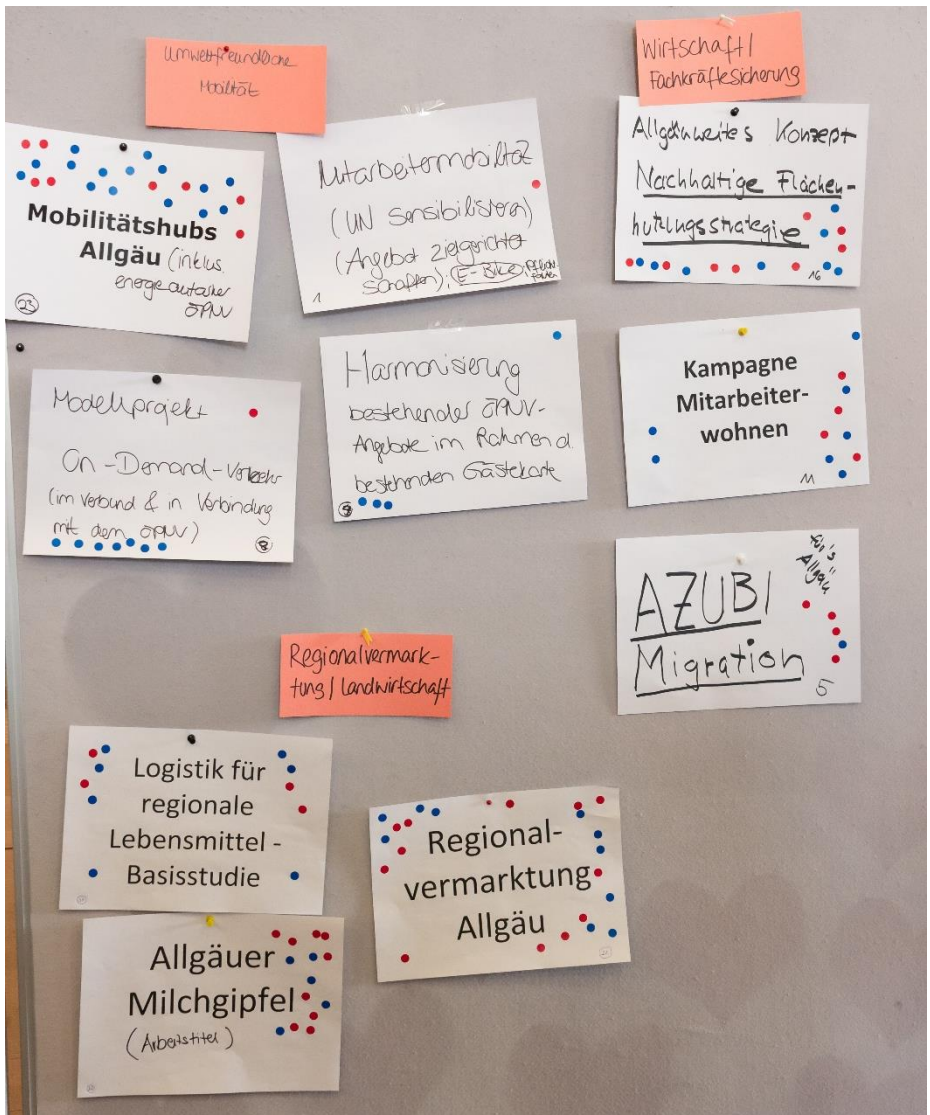 Umweltfreundliche
Mobilität
Mobilitätshubs
Allgäu (inklus.
energieautarker
ÖPNV
23
Mitarbeitermobilität
(UN sensibilisieren)
(Angebot zielgerichtet
schaffen), E-Bike,
1
Modellprojekt
On-Demand-Verkehr
(im Verbund & in Verbindung
mit dem ÖPNV)
8
Harmonisierung
bestehender ÖPNV-
Angebote im Rahmen d.
bestehenden Gästekarte
Wirtschaft/
Fachkräftesicherung
Allgäuweites Konzept
Nachhaltige Flächen-
nutzungsstrategie
16
Kampagne
Mitarbeiter-
wohnen
11
AZUBI
Migration
für's
Allgäu
5
Regionalvermark-
tung/Landwirtschaft
Logistik für
regionale
Lebensmittel -
Basisstudie
Allgäuer
Milchgipfel
(Arbeitstitel)
Regional-
vermarktung
Allgäu